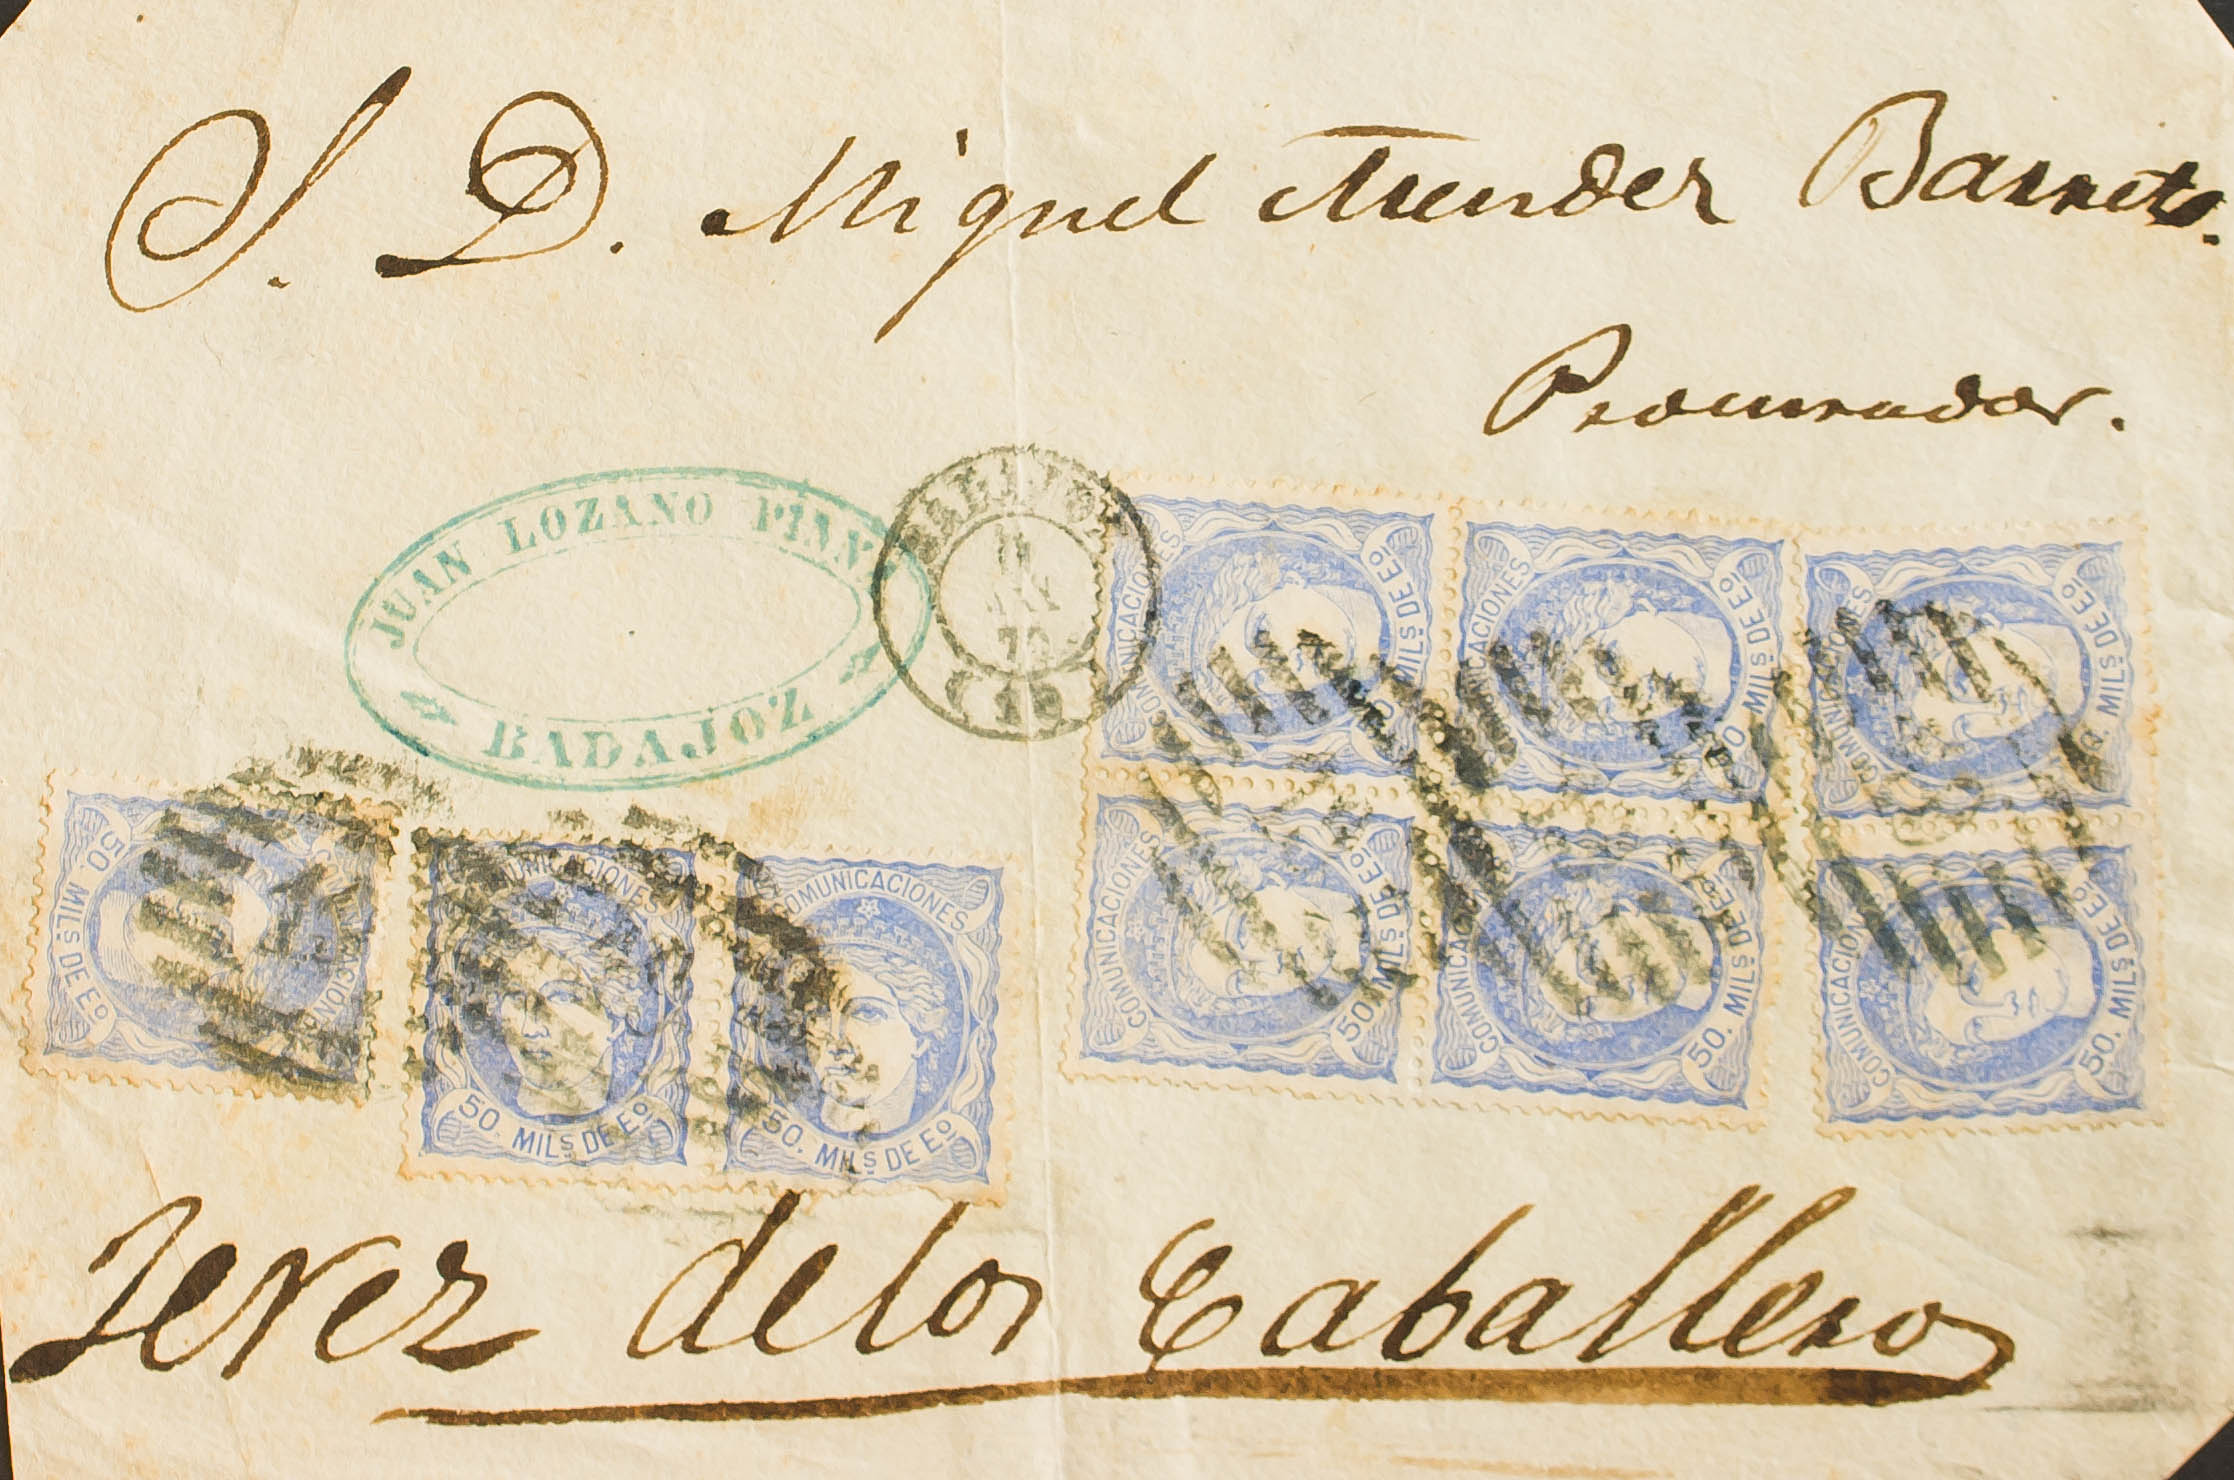 S. D. Miguel Mendez Barreto.
Procurador.
JUAN LOZANO PINNA
BADAJOZ
BADAJOZ
70
(10)
COMUNICACIONES
50 MILS DE Eº
COMUNICACIONES
50 MILS DE Eº
COMUNICACIONES
50. MILS DE Eº
COMUNICACIONES
50. MILS DE Eº
COMUNICACIONES
50. MILS DE Eº
COMUNICACIONES
50. MILS DE Eº
COMUNICACIONES
50. MILS DE Eº
COMUNICACIONES
50. MILS DE Eº
COMUNICACIONES
50. MILS DE Eº
Jerez de los Caballeros